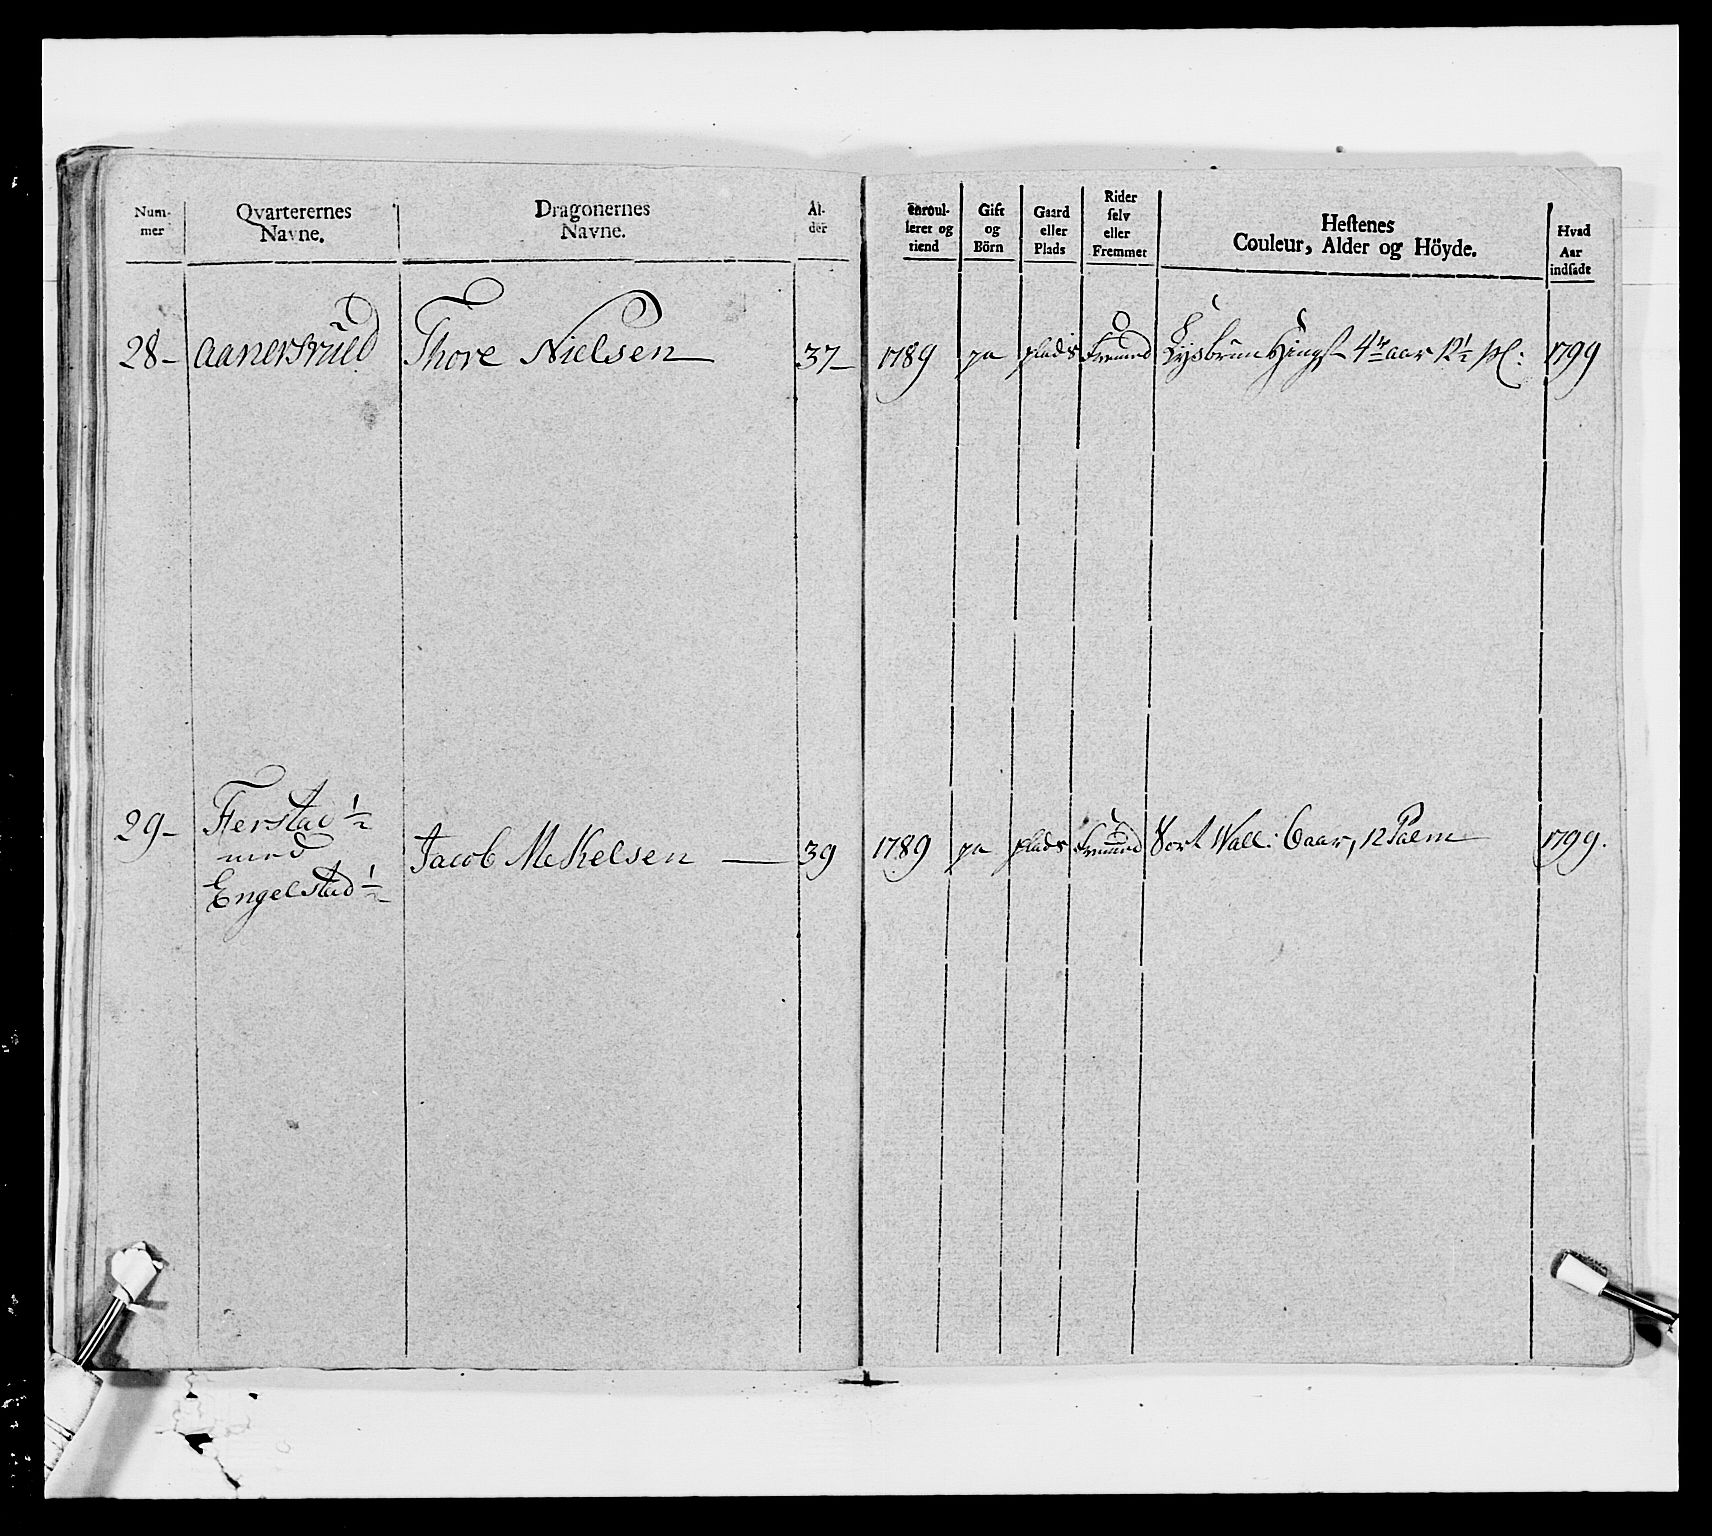 Num-
mer
Qvarterernes
Navne.
Dragonernes
Navne.
Al-
der
enroul-
leret og
tiend
Gift
og
Börn
Gaard
eller
Plads
Rider
selv
eller
Fremmet
Hestenes
Couleur, Alder og Höyde.
Hvad
Aar
indsadt
28- Aanersrüed Thore Nielsen 37 1789 ja plads Fremed Lysbrün Hingst 4 aar 12½ pl: 1799
29- Fierstad ½
med
Engelstad ½
Jacob Mikelsen 39 1789 ja plads Fremmed Sort Wall. 6 aar, 12 Palm 1799.